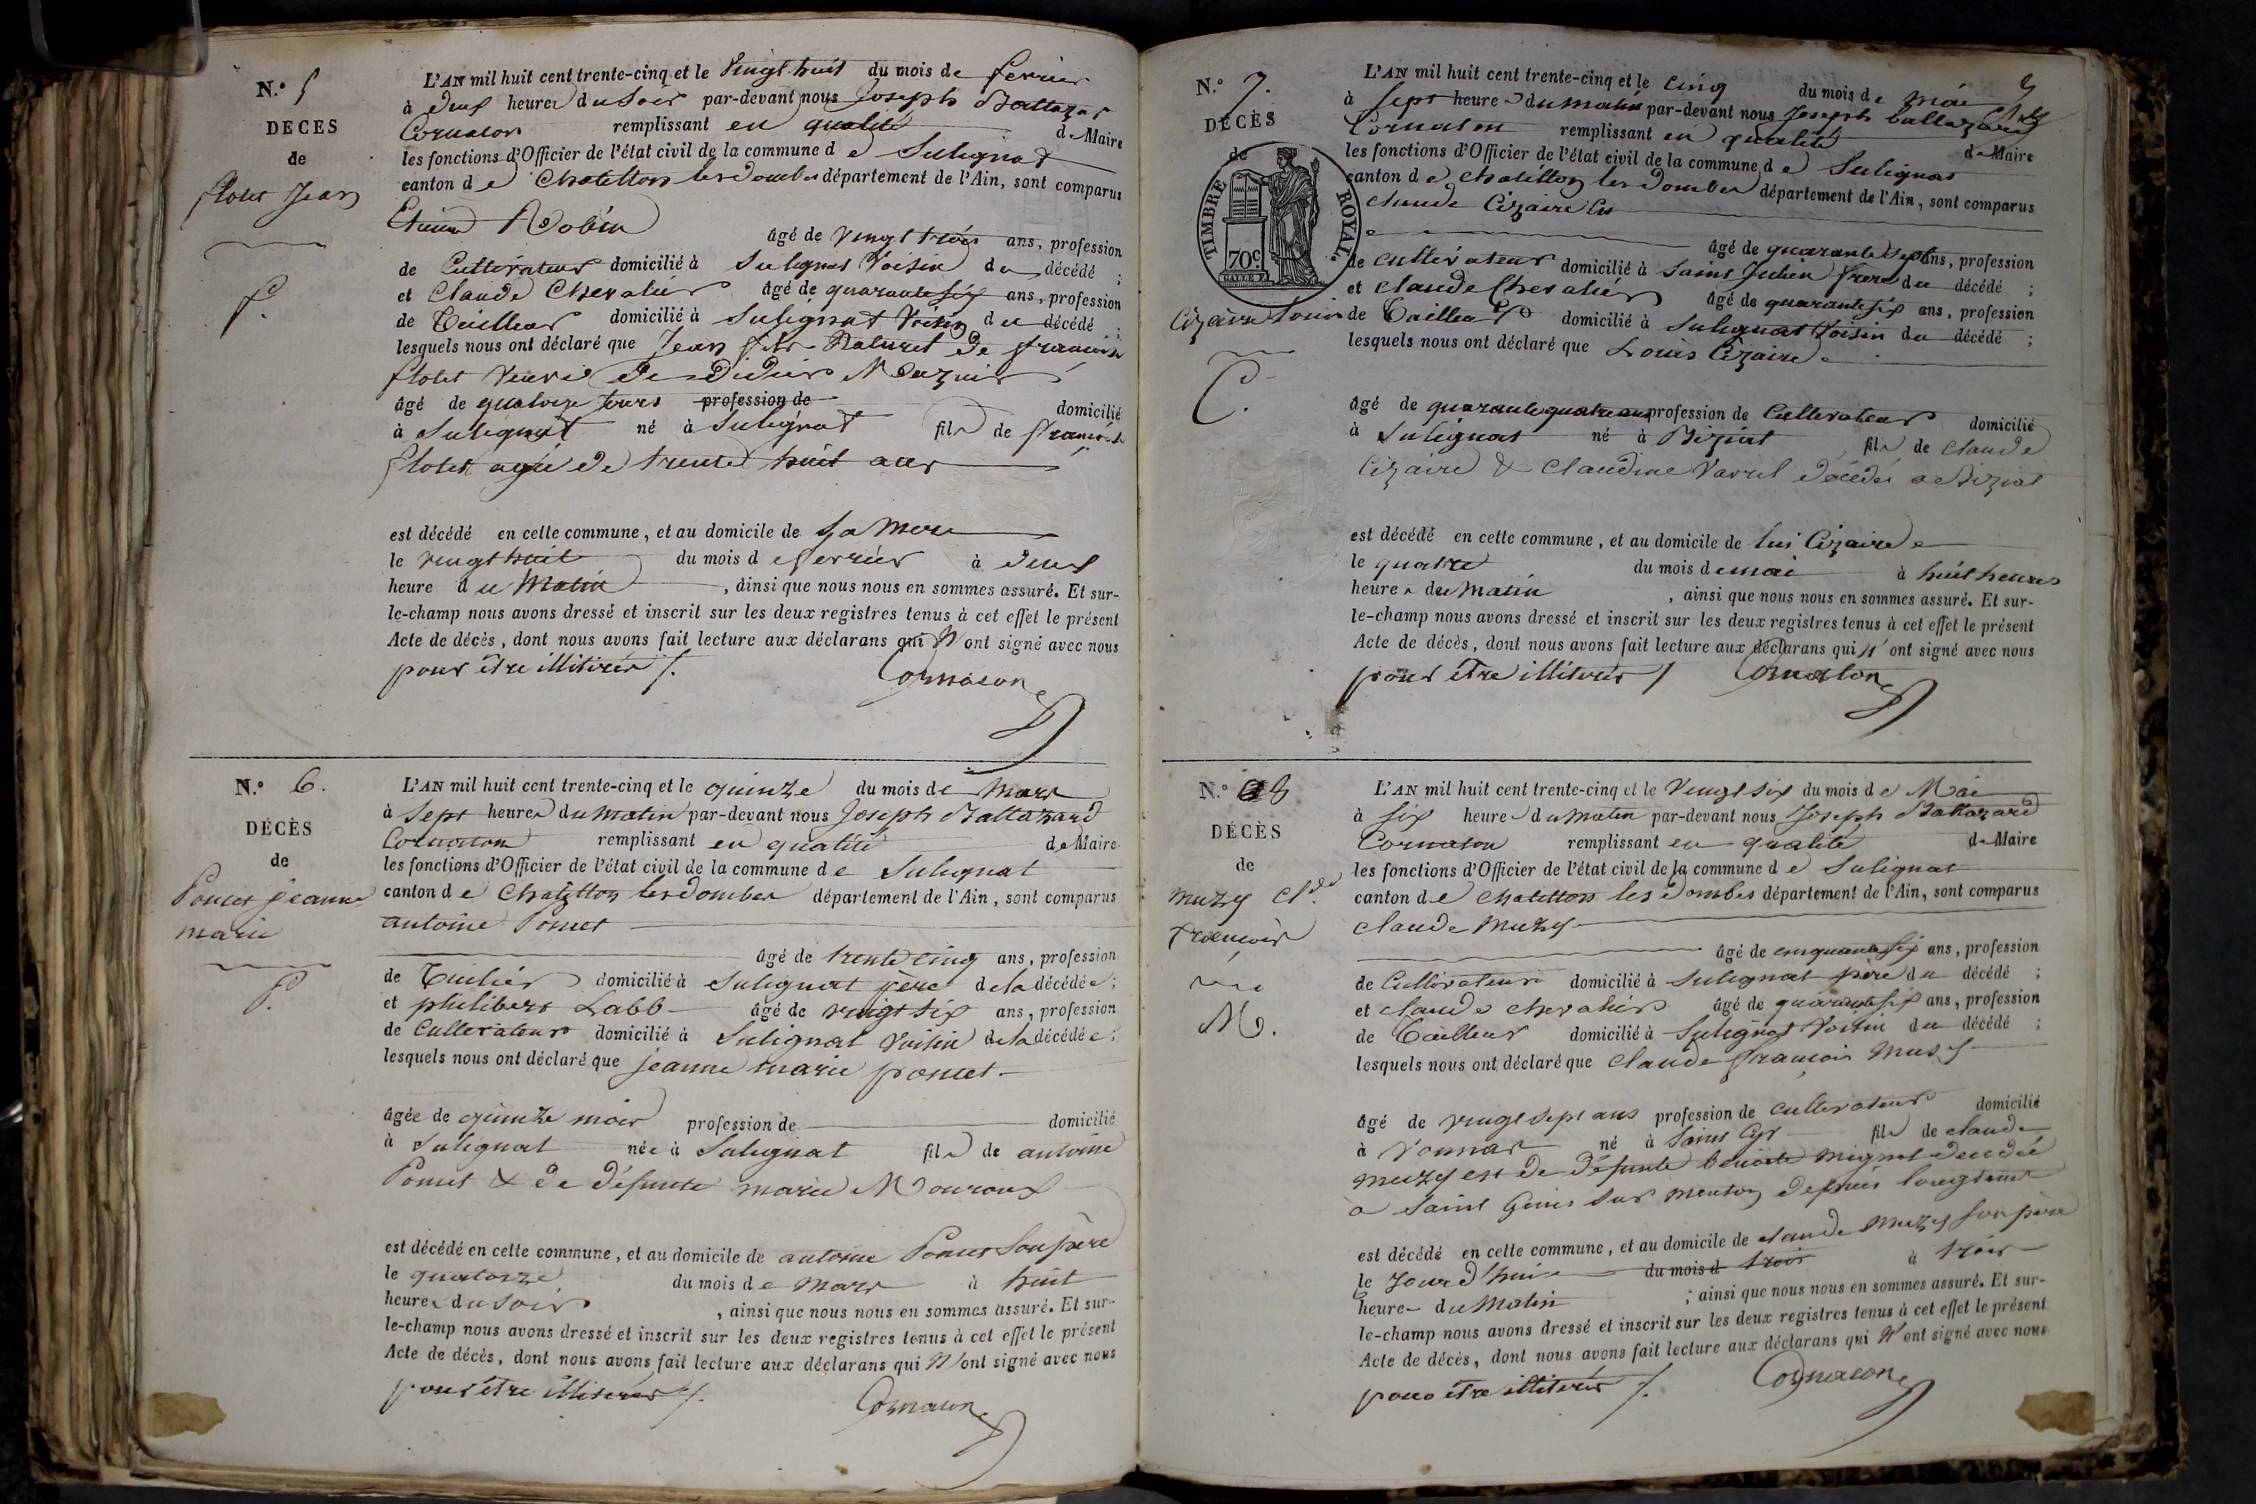 N.° 5
DÉCÈS
de
flotet Jean
f.
L'AN mil huit cent trente-cinq et le Vingt huit du mois de fevrier
à deux heures du Soir par-devant nous Joseph Baltazar
Cornaton remplissant en qualité de Maire
les fonctions d'Officier de l'état civil de la commune de Sulignat
canton de Chatillon les dombes département de l'Ain, sont comparus
Etienne Robin
âgé de vingt trois ans, profession
de Cultivateur domicilié à Sulignat Voisin du décédé ;
et Claude Chevalier âgé de quarante six ans, profession
de Tailleur domicilié à Sulignat Voisin du décédé ;
lesquels nous ont déclaré que Jean fils Naturel de francoise
flotet veuve de Didier Mazuir
âgé de quatorze Jours profession de domicilié
à Sulignat né à Sulignat fils de francoise
flotet agée de trente huit ans
est décédé en cette commune, et au domicile de Sa Mere
le vingt huit du mois de fevrier à deux
heure du Matin , ainsi que nous nous en sommes assuré. Et sur-
le-champ nous avons dressé et inscrit sur les deux registres tenus à cet effet le présent
Acte de décès, dont nous avons fait lecture aux déclarans qui N'ont signé avec nous
pour être illitirés /.
Cornaton
N.° 6.
DÉCÈS
de
Poncet jeanne
marie
P.
L'AN mil huit cent trente-cinq et le quinze du mois de Mars
à Sept heures du matin par-devant nous Joseph Baltazard
Cornaton remplissant en qualité de Maire
les fonctions d'Officier de l'état civil de la commune de Sulignat
canton de Chatillon les dombes département de l'Ain, sont comparus
antoine Poncet
âgé de trente cinq ans, profession
de Tuilier domicilié à Sulignat père de la décédée ;
et philibert Labb âgé de vingt six ans, profession
de Cultivateur domicilié à Sulignat Voisin de la décédée ;
lesquels nous ont déclaré que Jeanne marie poncet
âgée de quinze mois profession de domicilié
à Sulignat née à Sulignat fille de antoine
Poncet & de défunte marie Mouroux
est décédé en cette commune, et au domicile de antoine Poncet Son père
le quatorze du mois de mars à huit
heures du soir , ainsi que nous nous en sommes assuré. Et sur-
le-champ nous avons dressé et inscrit sur les deux registres tenus à cet effet le présent
Acte de décès, dont nous avons fait lecture aux déclarans qui N'ont signé avec nous
pour être illiterés /.
Cornaton
N.° 7.
DÉCÈS
de
TIMBRE ROYAL.
70c
Cizaire Louis
C.
L'AN mil huit cent trente-cinq et le cinq du mois de mai
à sept heures du matin par-devant nous Joseph baltazard
Cornaton remplissant en qualité de Maire
les fonctions d'Officier de l'état civil de la commune de Sulignat
canton de Chatillon les dombes département de l'Ain, sont comparus
claude Cizaire
âgé de quarante sept ans, profession
de cultivateur domicilié à Saint Julien frere du décédé ;
et claude Chevalier âgé de quarante six ans, profession
de Tailleur domicilié à Sulignat Voisin du décédé ;
lesquels nous ont déclaré que Louis Cizaire
âgé de quarante quatre ans profession de Cultivateur domicilié
à Sulignat né à Biziat fils de claude
Cizaire & Claudine Varvel décédés a Biziat
est décédé en cette commune, et au domicile de lui Cizaire
le quatre du mois de mai à huit heures
heures du matin , ainsi que nous nous en sommes assuré. Et sur-
le-champ nous avons dressé et inscrit sur les deux registres tenus à cet effet le présent
Acte de décès, dont nous avons fait lecture aux déclarans qui N'ont signé avec nous
pour être illiterés /
Cornaton
N.° 8
DÉCÈS
de
Muzy Cl.de
francois
M.
L'AN mil huit cent trente-cinq et le Vingt six du mois de Mai
à six heures du matin par-devant nous Joseph Baltazard
Cornaton remplissant en qualité de Maire
les fonctions d'Officier de l'état civil de la commune de Sulignat
canton de Chatillon les dombes département de l'Ain, sont comparus
claude Muzy
âgé de cinquante six ans, profession
de Cultivateur domicilié à Sulignat père du décédé ;
et claude chevalier âgé de quarante six ans, profession
de Tailleur domicilié à Sulignat Voisin du décédé ;
lesquels nous ont déclaré que Claude francois Muzy
âgé de vingt sept ans profession de cultivateur domicilié
à Vonnas né à Saint Cyr fils de claude
muzy et de défunte benoite mignot décédée
à Saint Genis sur menton depuis longtems
est décédé en cette commune, et au domicile de claude muzy son père
le Jour d'hui du mois d trois à trois
heures du Matin ; ainsi que nous nous en sommes assuré. Et sur-
le-champ nous avons dressé et inscrit sur les deux registres tenus à cet effet le présent
Acte de décès, dont nous avons fait lecture aux déclarans qui N'ont signé avec nous
pour être illitirés /.
Cornaton